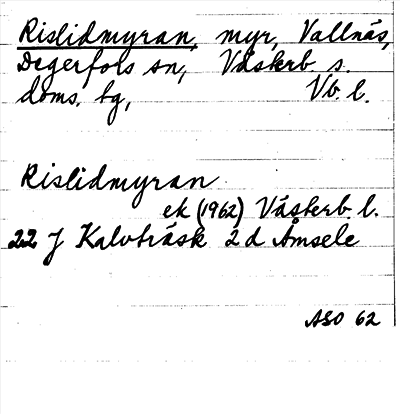 Rislidmyran, myr, Vallnäs,
Degerfors sn, Västerb. s.
doms. bg, Vb. l.
Rislidmyran
ek (1962) Västerb. l.
22 J Kalvträsk 2d Åmsele
ASO 62